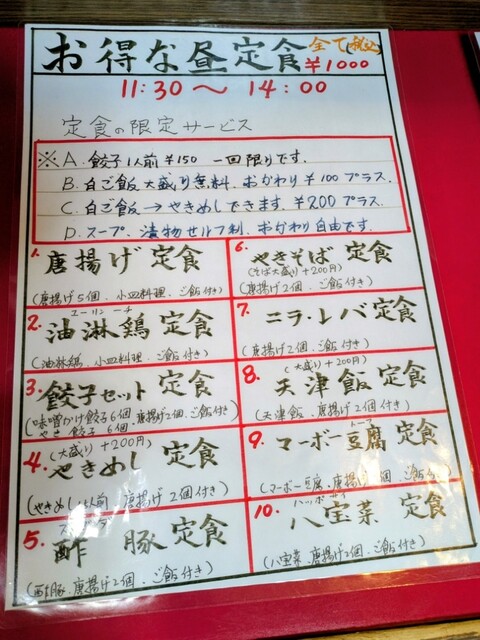 お得な昼定食 全て(税込)
¥1000
11:30～14:00
定食の限定サービス
※A. 餃子1人前¥150 一回限りです.
B. 白ご飯大盛り無料. おかわり¥100プラス.
C. 白ご飯→やきめしできます. ¥200プラス.
D. スープ、漬物セルフ利、おかわり自由です.
1. 唐揚げ定食
(唐揚げ5個. 小皿料理. ご飯付き)
2. 油淋鶏定食
ユーリンーチ
(油林鶏. 小皿料理. ご飯付き)
3. 餃子セット定食
(味噌かけ餃子6個. 唐揚げ2個. ご飯付き)
やき餃子6個
4. やきめし定食
(大盛り+200円)
(やきめし1人前 唐揚げ2個付き)
5. 酢豚定食
(酢豚. 唐揚げ2個. ご飯付き)
6. やきそば定食
(そば大盛り+200円)
(唐揚げ2個. ご飯付き)
7. ニラ・レバ定食
(唐揚げ2個. ご飯付き)
8. 天津飯定食
(大盛り+200円)
(天津飯. 唐揚げ2個付き)
9. マーボー豆腐定食
トーフ
(マーボー豆腐. 唐揚げ 個. ご飯付き)
10. 八宝菜定食
ハッポーサイ
(八宝菜. 唐揚げ2個. ご飯付き)